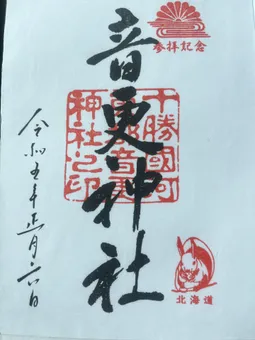 参拝記念
音更神社
十勝國河
東郡音更
神社之印
令和五年正月六日
北海道